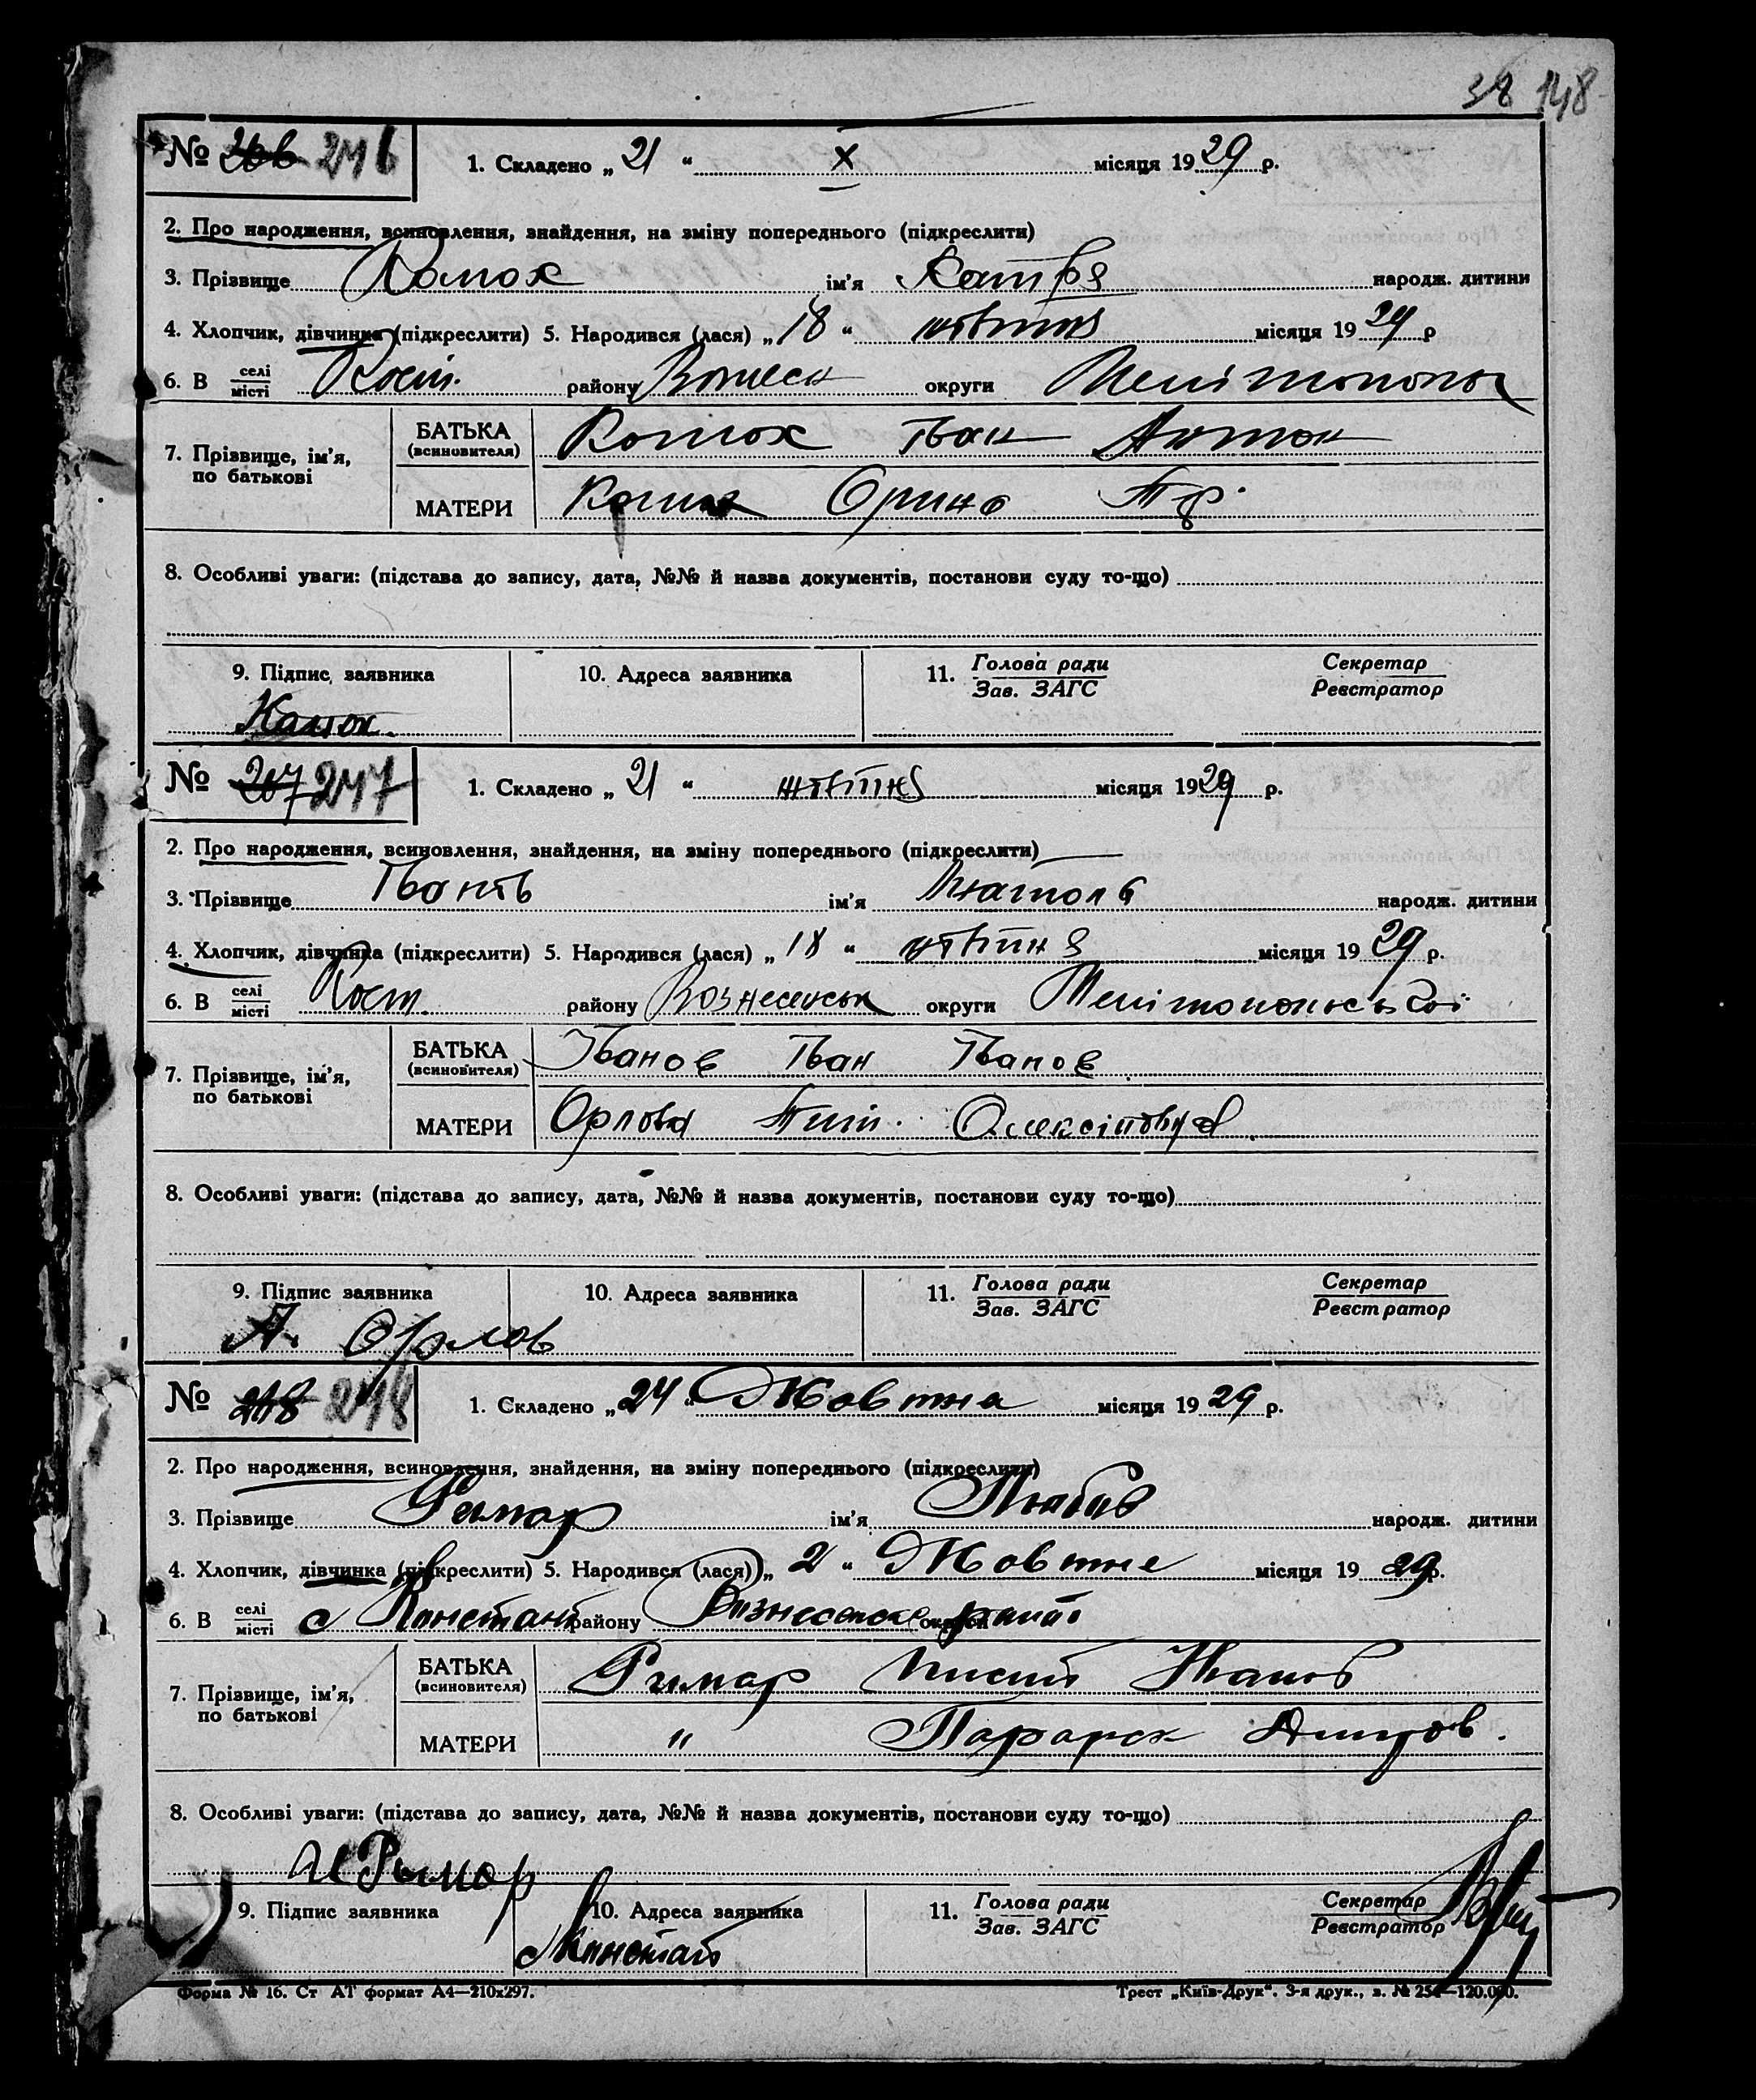 38 148
№ 206 246 1. Складено „ 21 “ X місяця 1929 р.
2. Про народження, всиновлення, знайдення, на зміну попереднього (підкреслити)
3. Прізвище ім'я Катря народж. дитини
4. Хлопчик, дівчинка (підкреслити) 5. Народився (лася) „ 18 “ жовтня місяця 1929 р
6. В селі місті Кост. району округи
7. Прізвище, ім'я, по батькові
БАТЬКА (всиновителя) Іван Антон
МАТЕРИ Орина
8. Особливі уваги: (підстава до запису, дата, №№ й назва документів, постанови суду то-що)
9. Підпис заявника 10. Адреса заявника 11. Голова ради Зав. ЗАГС Секретар Реєстратор
№ 207 247 1. Складено „ 21 “ жовтня місяця 1929 р.
2. Про народження, всиновлення, знайдення, на зміну попереднього (підкреслити)
3. Прізвище ім'я народж. дитини
4. Хлопчик, дівчинка (підкреслити) 5. Народився (лася) „ 18 “ жовтня місяця 1929 р.
6. В селі місті Кост. району Вознесенськ округи Мелітопольської
7. Прізвище, ім'я, по батькові
БАТЬКА (всиновителя) Іванов Іван Іванов
МАТЕРИ Орлова
8. Особливі уваги: (підстава до запису, дата, №№ й назва документів, постанови суду то-що)
9. Підпис заявника 10. Адреса заявника 11. Голова ради Зав. ЗАГС Секретар Реєстратор
А. Орлов
№ 248 1. Складено „ 24 “ Жовтна місяця 1929 р.
2. Про народження, всиновлення, знайдення, на зміну попереднього (підкреслити)
3. Прізвище Римар ім'я народж. дитини
4. Хлопчик, дівчинка (підкреслити) 5. Народився (лася) „ 2 “ Жовтне місяця 1929 р.
6. В селі місті с Констант району округи
7. Прізвище, ім'я, по батькові
БАТЬКА (всиновителя) Римар
МАТЕРИ "
8. Особливі уваги: (підстава до запису, дата, №№ й назва документів, постанови суду то-що)
И Рымор
9. Підпис заявника 10. Адреса заявника 11. Голова ради Зав. ЗАГС Секретар Реєстратор
Форма № 16. Ст АТ формат А4—210х297. Трест „Київ-Друк“. 3-я друк., з. № 254—120.000.